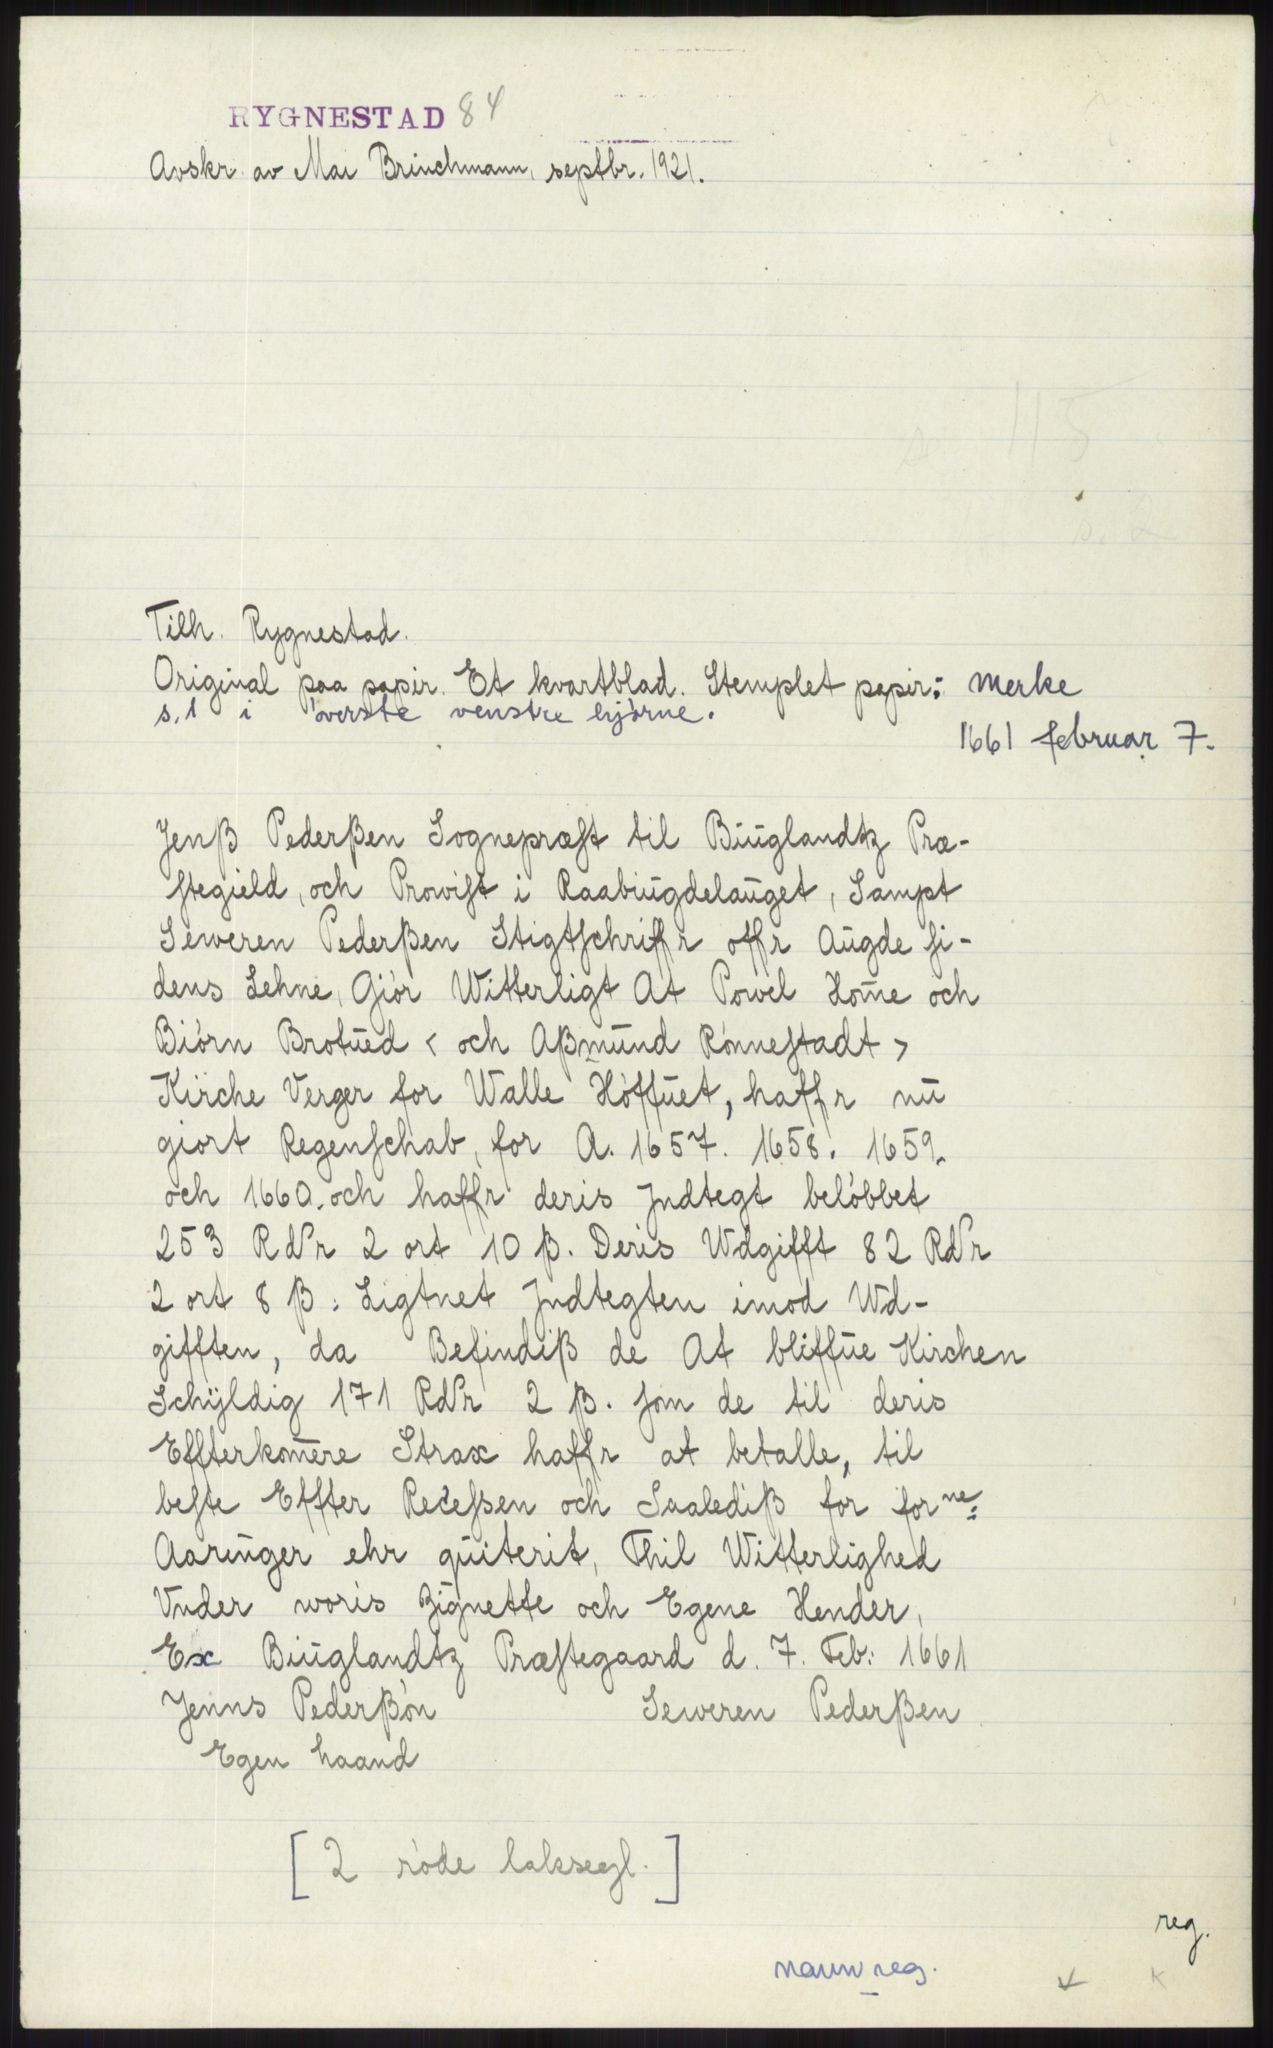 RYGNESTAD 84
Avskr. av Mai Brinchmann, septbr. 1921.
Tilh. Rygnestad.
Original paa papir. Et kvartblad. Stemplet papir: merke
s. 1 i överste venstre hjörne.
1661 februar 7.
Jenß Pederßen Sognepræst til Biuglandtz Præ-
stegield, och Prowist i Raabiugdelauget, Sampt
Seweren Pederßen Stigtschriffr offr Augde si-
dens Lehne, Giör Witterligt At Powel Hom̄e och
Biörn Brotued < och Aßmund Rönnestadt >
Kirche Verger for Walle Höffuet, haffr nu
giort Regenschab, for A. 1657. 1658. 1659.
och 1660. och haffr deris Jndtegt belöbbet
253 Rdlr 2 ort 10 ß. Deris Wdgifft 82 Rdlr
2 ort 8 ß: Ligtnet Jndtegten imod Wd-
gifften, da Befindiß de At bliffue Kirchen
Schyldig 171 Rdlr 2 ß. som de til deris
Effterkom̄ere Strax haffr at betalle, til
beste Effter Recessen och Saalediß for forne:
Aaringer ehr quiterit, Thil Witterlighed
Vnder woris Zignette och Egene Hender,
Ex Biuglandtz Præstegaard d. 7. Feb: 1661
Jenns Pederßön Seweren Pederßen
Egen haand
[2 röde laksegl.]
reg.
navnreg.